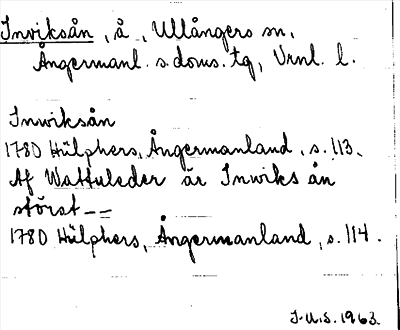 Inviksån, å, Ullångers sn,
Ångermanl. s. doms. tg, Vrnl. l.
Inwiksån
1780 Hülphers, Ångermanland, s. 113.
Af Wattuleder är Inwiks ån
störst--
1780 Hülphers, Ångermanland, s. 114.
I.U.S. 1963.